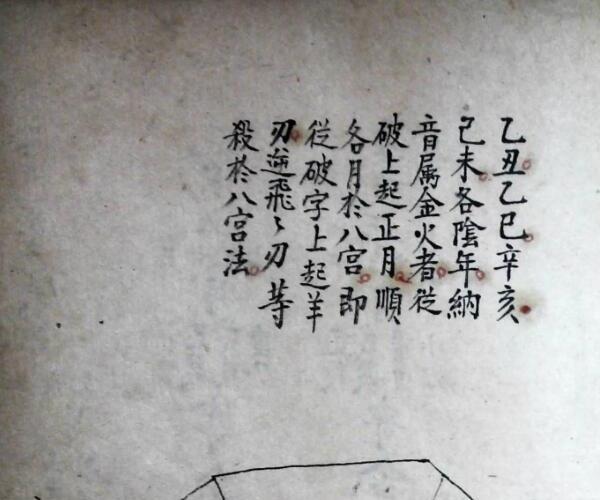 乙丑乙巳辛亥
己未各陰年納
音属金火者從
破上起正月順
各月於八宮即
從破字上起羊
刃逆飛〻刃等
殺於八宮法